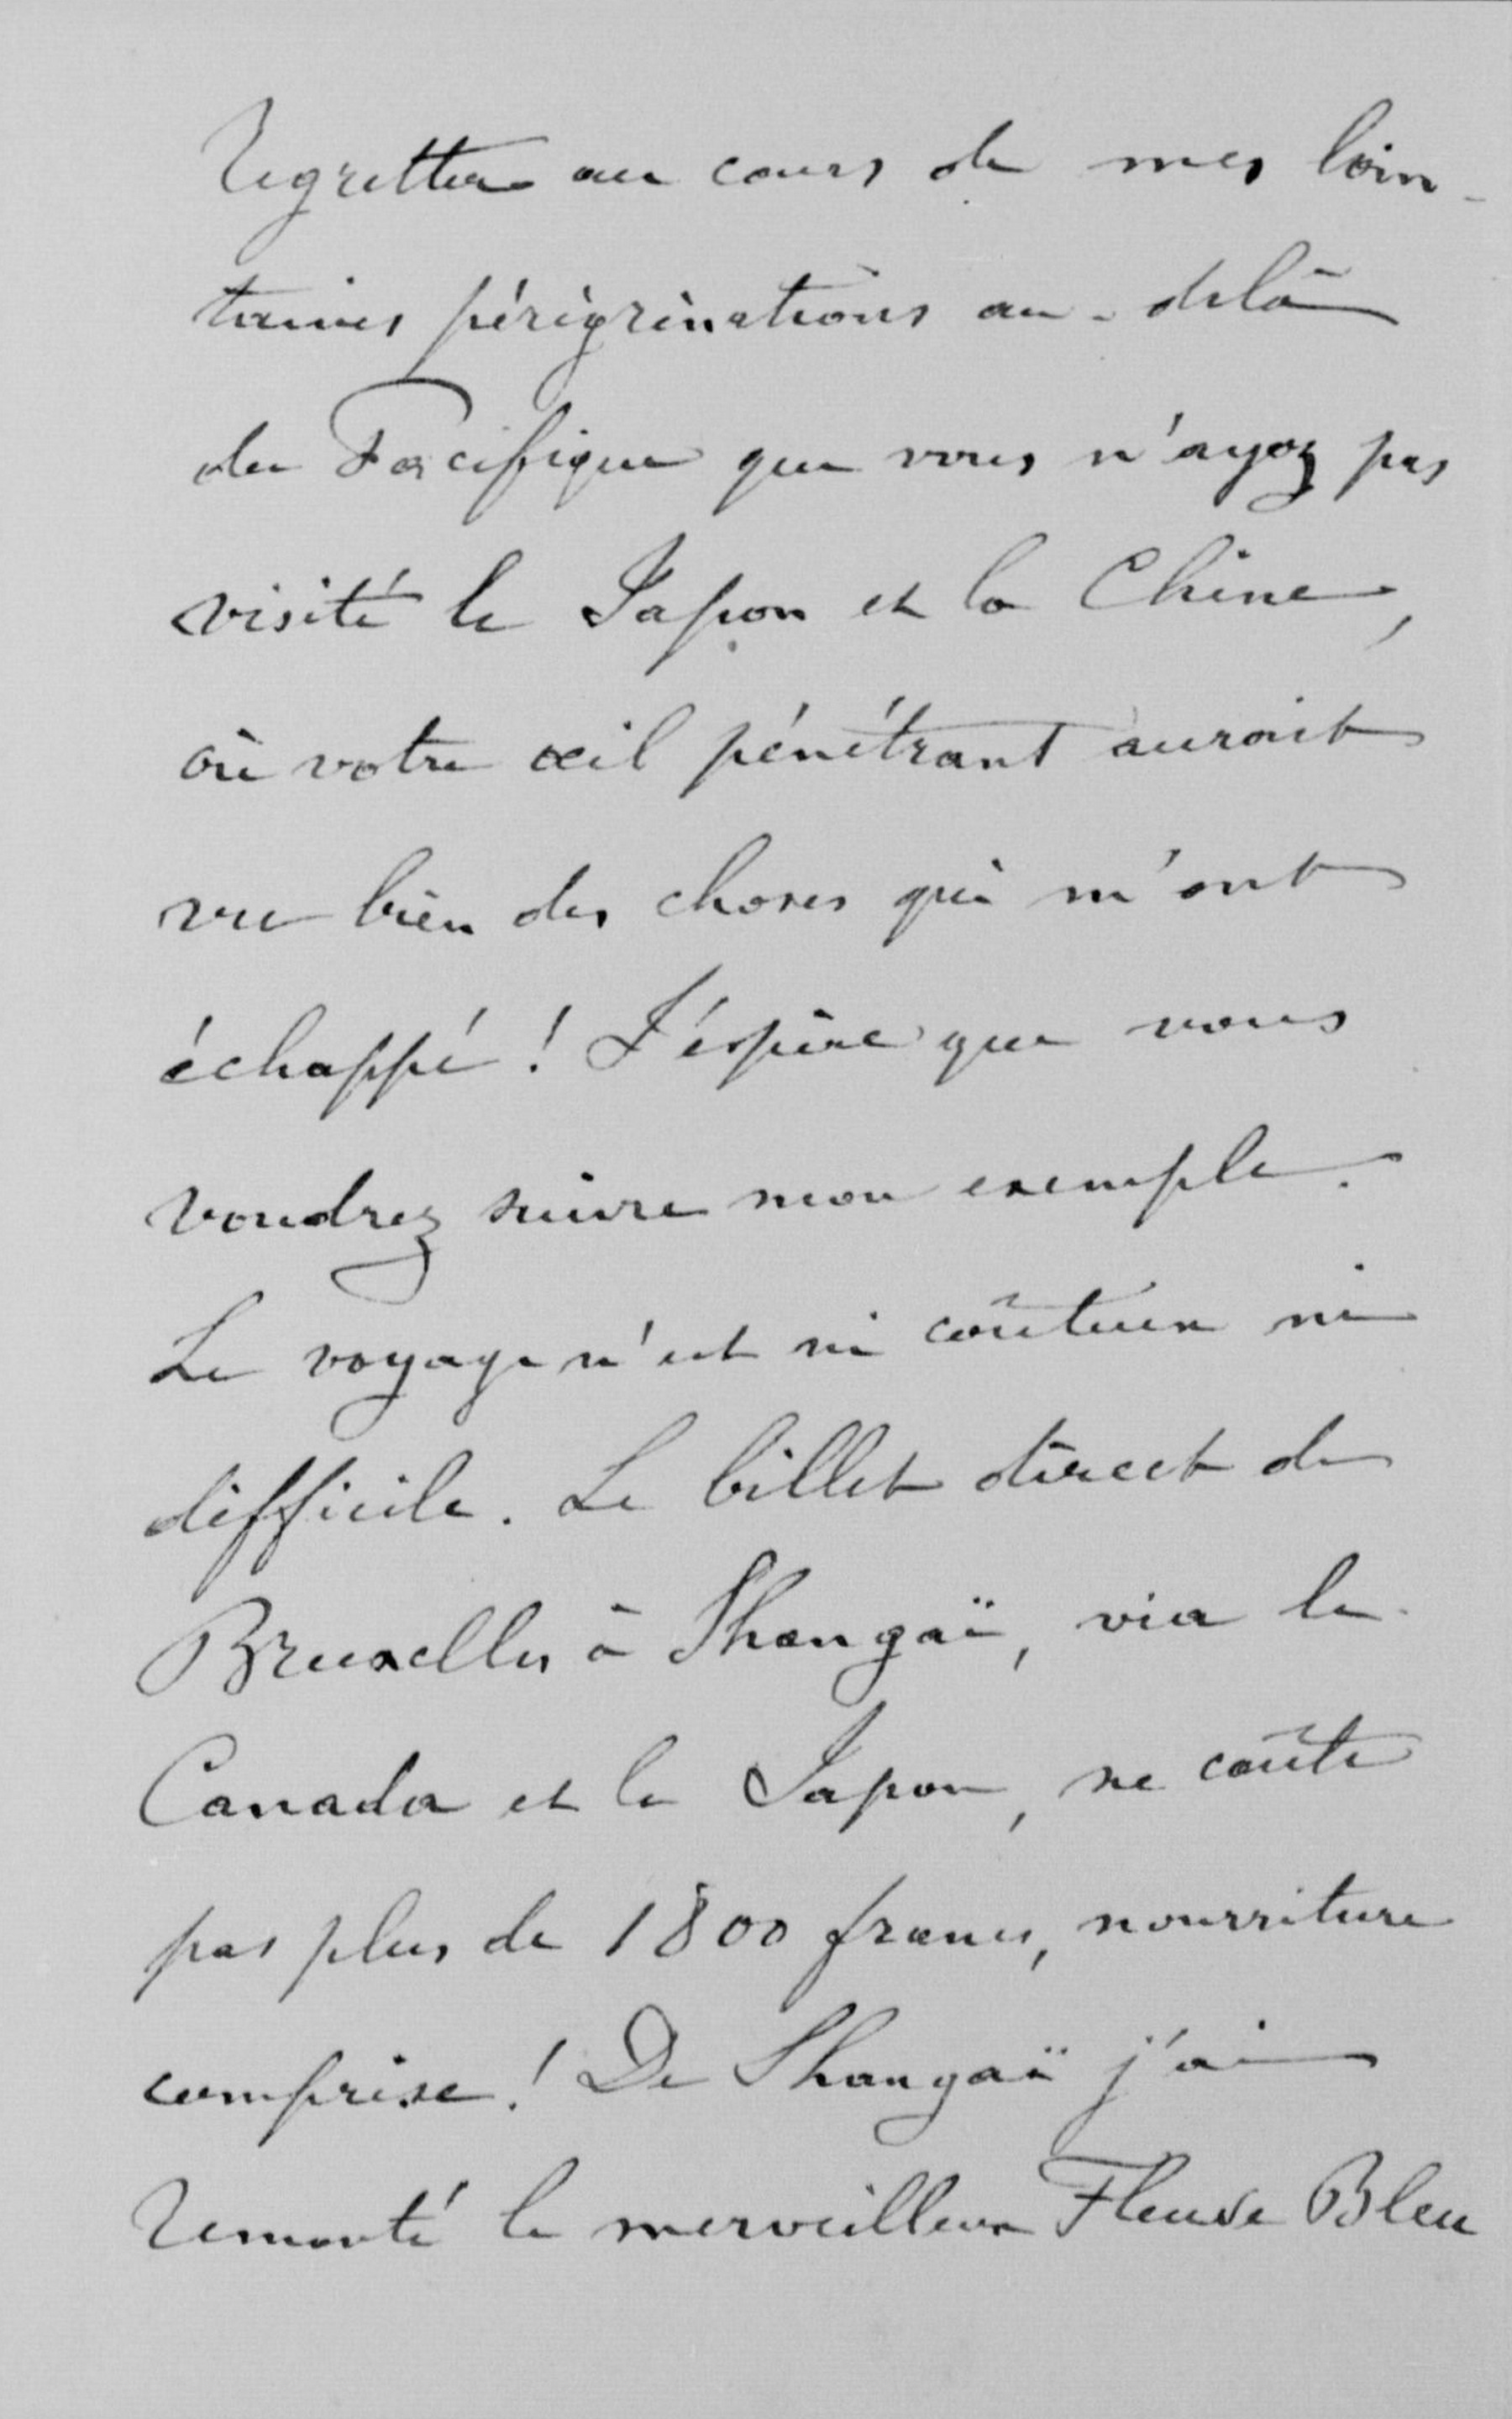 regretter au cours de mes loin-
taines pérégrinations au-delà
du Pacifique que vous n'ayez pas
visité le Japon et la Chine,
où votre œil pénétrant aurait
vu bien des choses qui m'ont
échappé ! J'éspère que vous
voudrez suivre mon exemple.
Le voyage n'est ni coûteux ni
difficile. Le billet direct de
Bruxelles à Shangaï, via le
Canada et le Japon, ne coûte
pas plus de 1800 francs, nourriture
comprise ! De Shangaï j'ai
remonté le merveilleux Fleuve Bleu